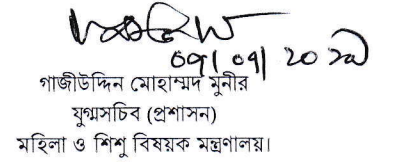 ০৭/০৭/২০২৯
গাজীউদ্দিন মোহাম্মদ মুনীর
যুগ্মসচিব (প্রশাসন)
মহিলা ও শিশু বিষয়ক মন্ত্রণালয়।